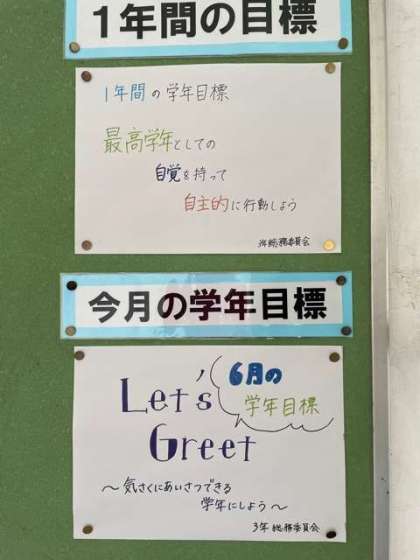 1年間の目標
1年間の学年目標
最高学年としての
自覚を持って
自主的に行動しよう
3年総務委員会
今月の学年目標
6月の
学年目標
Let's
Greet
〜気さくにあいさつできる
学年にしよう〜
3年総務委員会